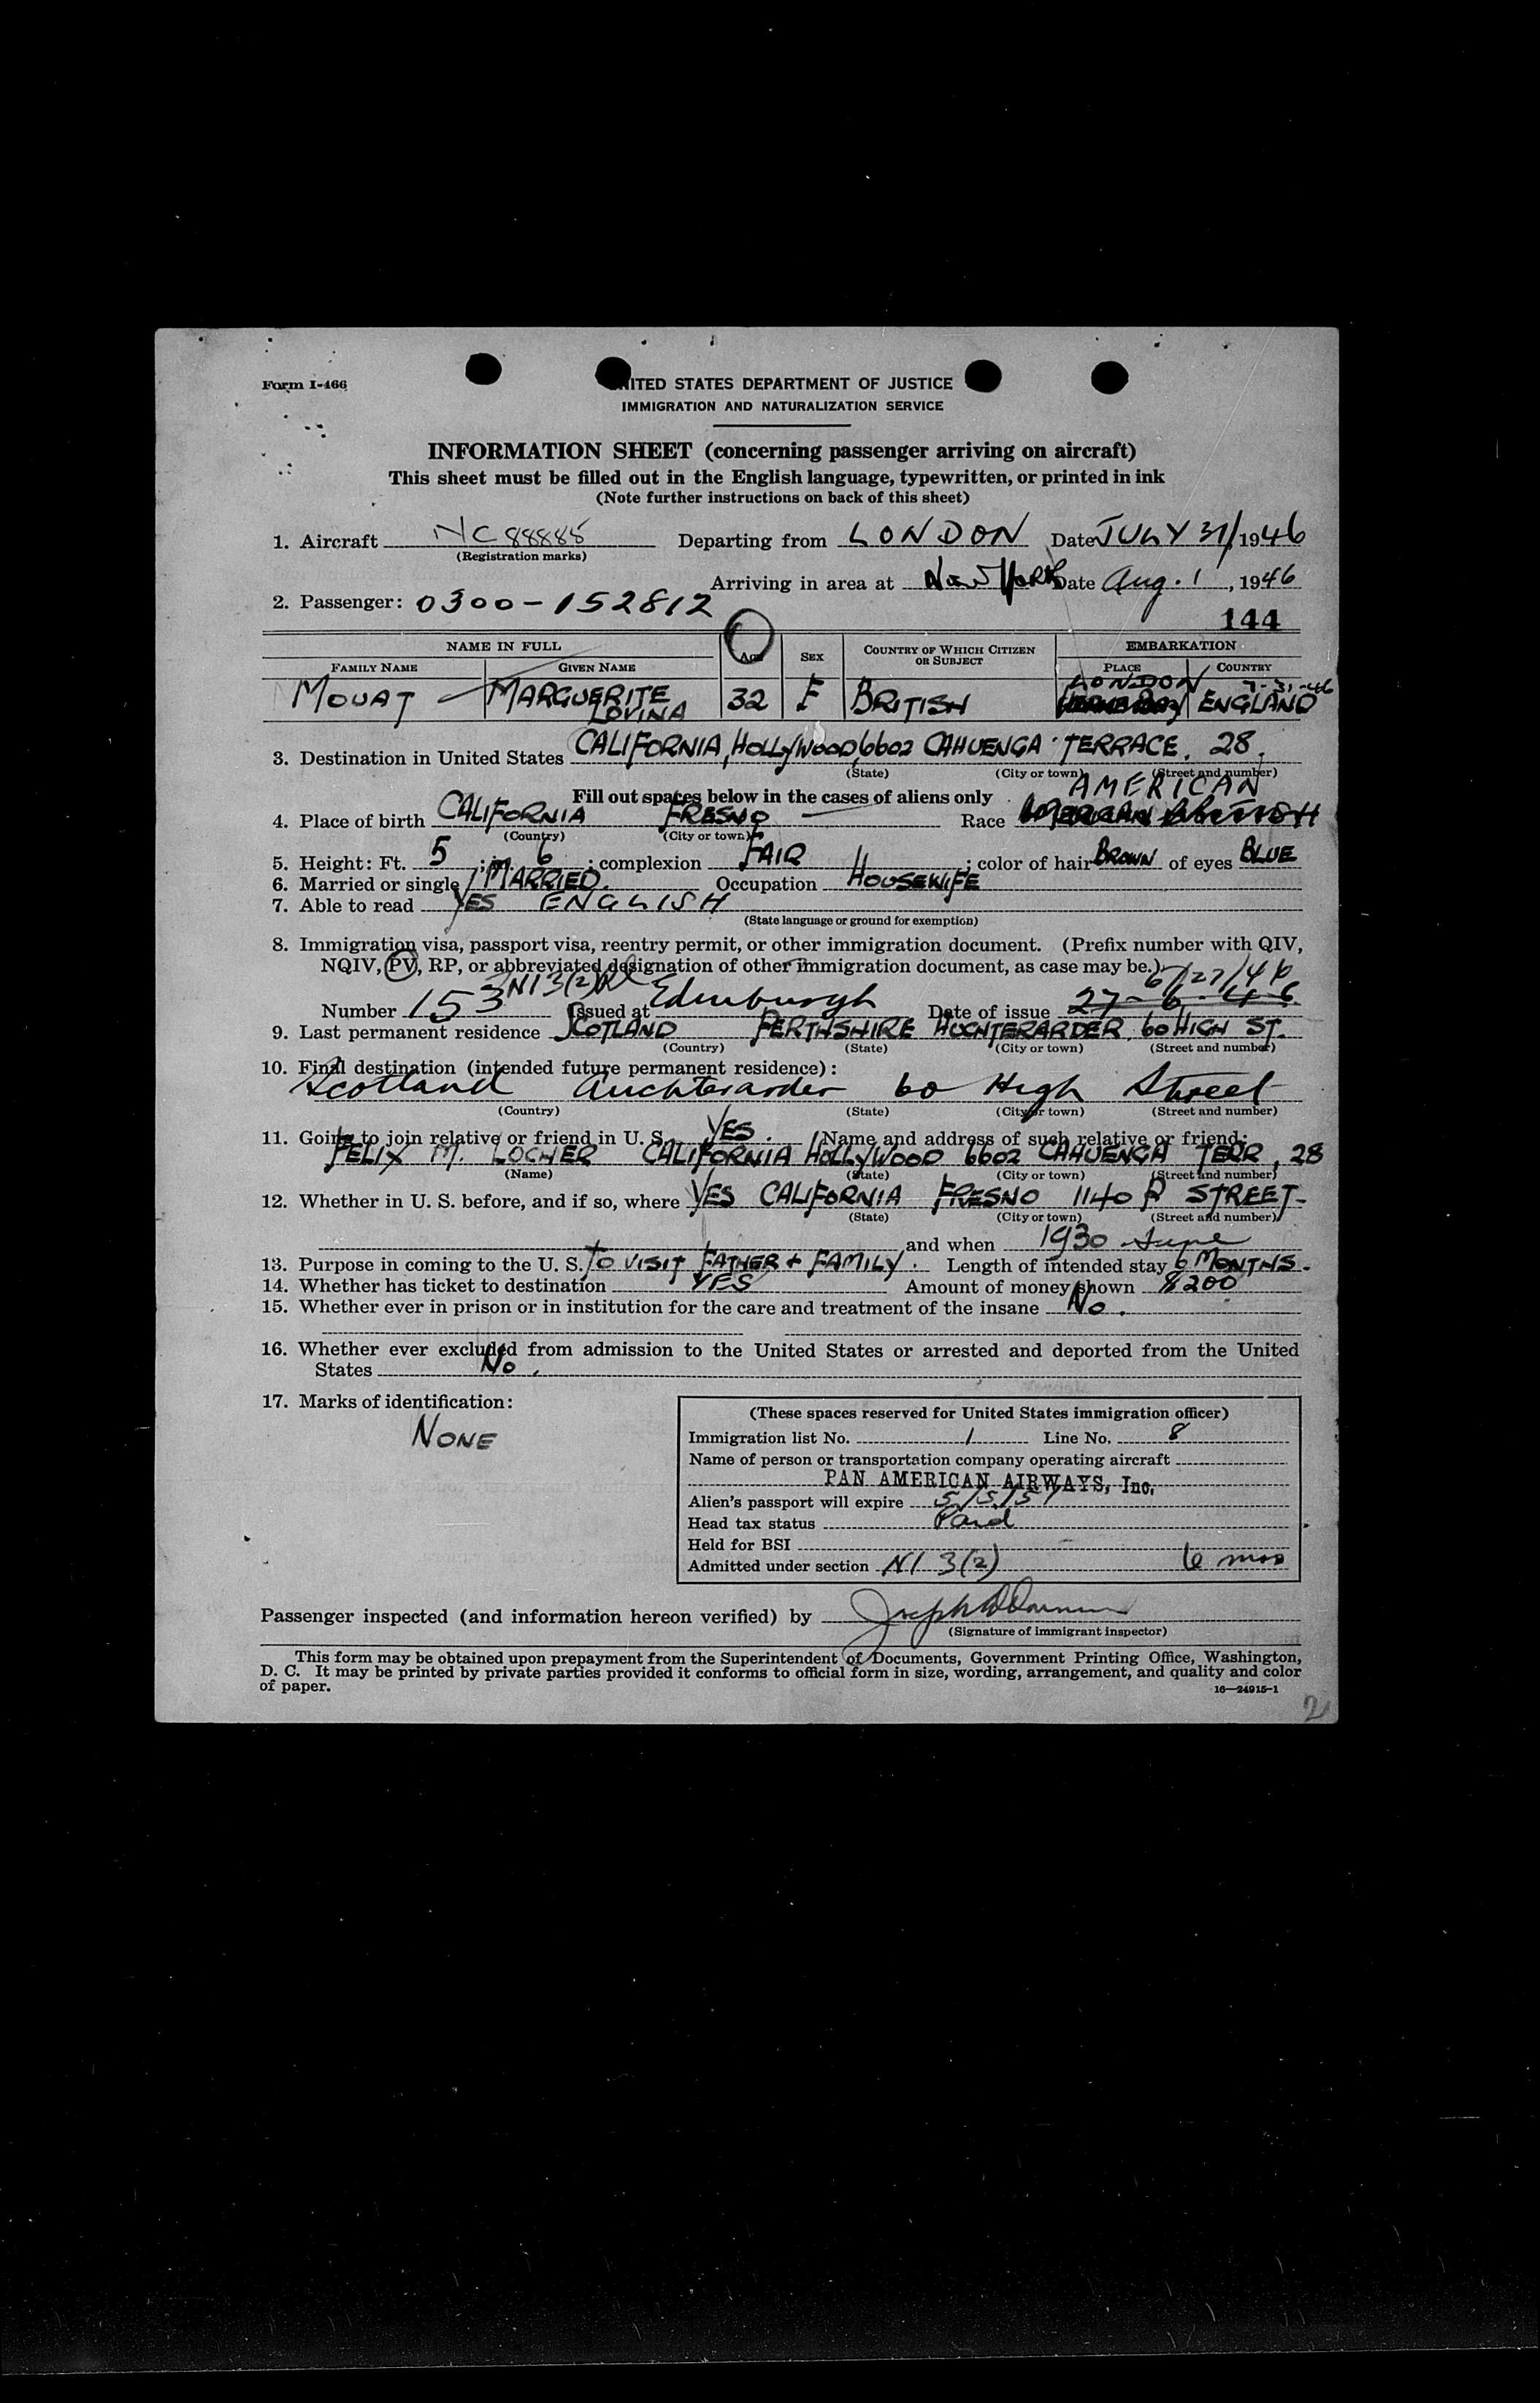 Form I-466
UNITED STATES DEPARTMENT OF JUSTICE
IMMIGRATION AND NATURALIZATION SERVICE
INFORMATION SHEET (concerning passenger arriving on aircraft)
This sheet must be filled out in the English language, typewritten, or printed in ink
(Note further instructions on back of this sheet)
1. Aircraft NC 88885 Departing from LONDON Date JULY 31, 1946
(Registration marks)
Arriving in area at New York Date Aug. 1, 1946
2. Passenger: 0300-152812
144
NAME IN FULL Age SEX COUNTRY OF WHICH CITIZEN OR SUBJECT EMBARKATION
FAMILY NAME GIVEN NAME PLACE COUNTRY
LONDON 7-31-46
MOUAT MARGUERITE LOVINA 32 F BRITISH ENGLAND
3. Destination in United States CALIFORNIA, HOLLYWOOD, 6602 CAHUENGA TERRACE. 28.
(State) (City or town) (Street and number)
Fill out spaces below in the cases of aliens only AMERICAN
4. Place of birth CALIFORNIA FRESNO Race AMERICAN BRITISH
(Country) (City or town)
5. Height: Ft. 5; in. 6; complexion FAIR; color of hair BROWN of eyes BLUE
6. Married or single MARRIED. Occupation HOUSEWIFE
7. Able to read YES ENGLISH
(State language or ground for exemption)
8. Immigration visa, passport visa, reentry permit, or other immigration document. (Prefix number with QIV,
NQIV, PV, RP, or abbreviated designation of other immigration document, as case may be.)
NI 3(2) 6/27/46
Number 153 Issued at Edinburgh Date of issue 27-6-46
9. Last permanent residence SCOTLAND PERTHSHIRE AUCHTERARDER. 60 HIGH ST.
(Country) (State) (City or town) (Street and number)
10. Final destination (intended future permanent residence):
Scotland Auchterarder 60 High Street
(Country) (State) (City or town) (Street and number)
11. Going to join relative or friend in U. S. YES. Name and address of such relative or friend:
FELIX M. LOCHER CALIFORNIA HOLLYWOOD 6602 CAHUENGA TERR, 28
(Name) (State) (City or town) (Street and number)
12. Whether in U. S. before, and if so, where YES CALIFORNIA FRESNO 1140 P STREET-
(State) (City or town) (Street and number)
and when 1930 June
13. Purpose in coming to the U. S. TO VISIT FATHER + FAMILY. Length of intended stay 6 MONTHS.
14. Whether has ticket to destination YES Amount of money shown $200
15. Whether ever in prison or in institution for the care and treatment of the insane No.
16. Whether ever excluded from admission to the United States or arrested and deported from the United
States No.
17. Marks of identification:
NONE
(These spaces reserved for United States immigration officer)
Immigration list No. 1 Line No. 8
Name of person or transportation company operating aircraft
PAN AMERICAN AIRWAYS, Inc.
Alien's passport will expire 5/5/51
Head tax status Paid
Held for BSI
Admitted under section NI 3(2) 6 mos
Passenger inspected (and information hereon verified) by
(Signature of immigrant inspector)
This form may be obtained upon prepayment from the Superintendent of Documents, Government Printing Office, Washington,
D. C. It may be printed by private parties provided it conforms to official form in size, wording, arrangement, and quality and color
of paper.
16—24915-1
2